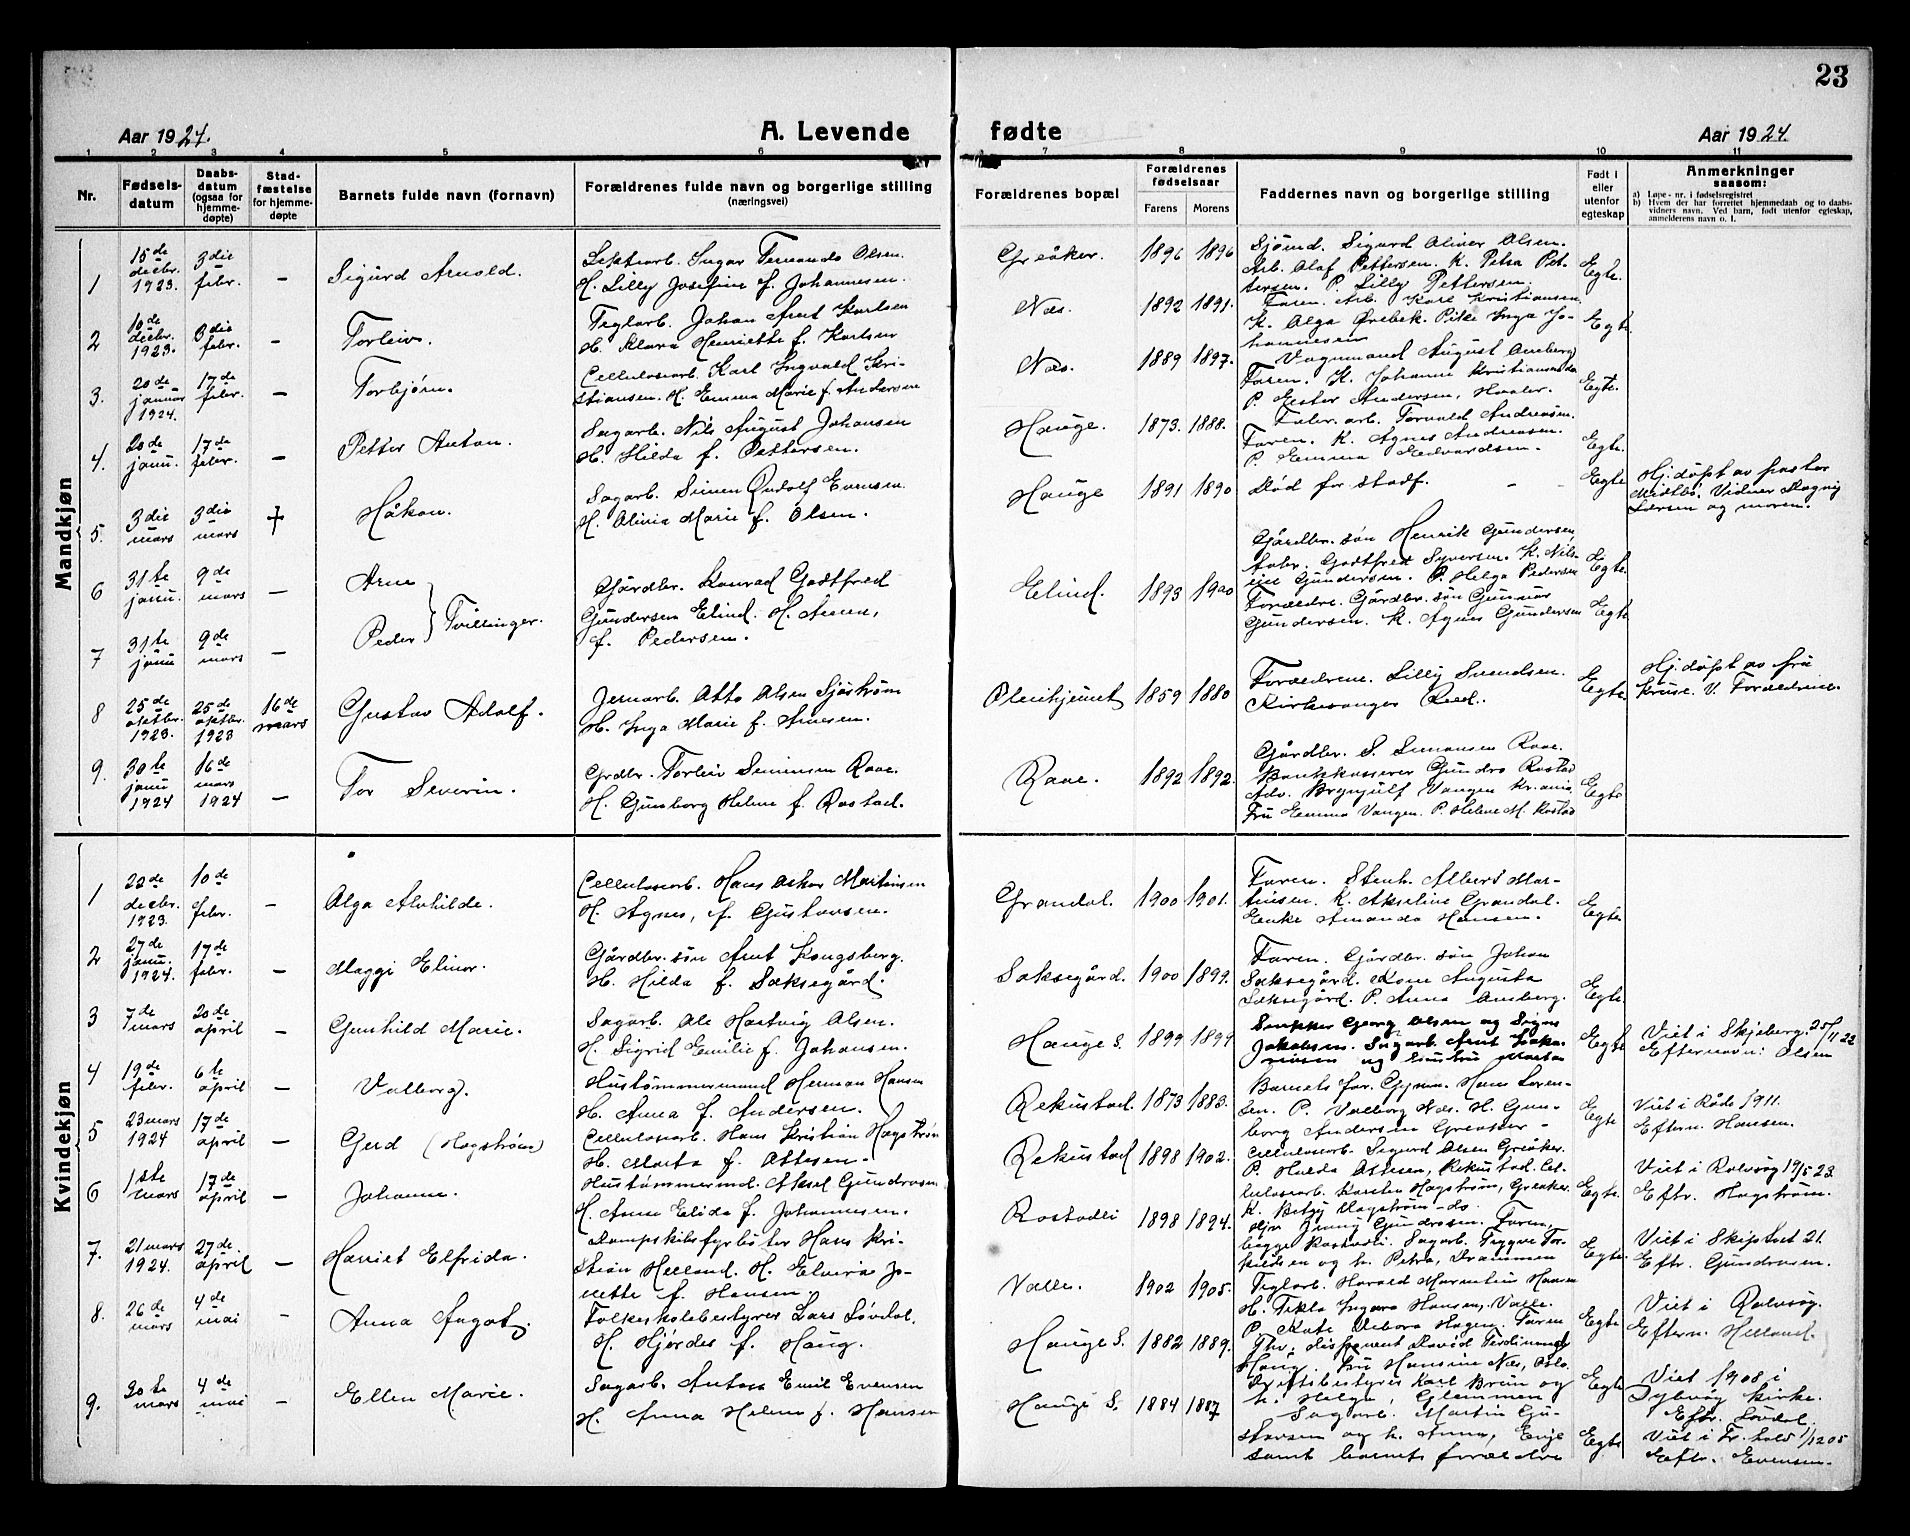 23
Aar 1924.
A. Levende fødte
Aar 1924.
1 2 3 4 5 6 7 8 9 10 11
Nr.
Fødsels-
datum
Daabs-
datum
(ogsaa for
hjemme-
døpte)
Stad-
fæstelse
for hjemme-
døpte
Barnets fulde navn (fornavn)
Forældrenes fulde navn og borgerlige stilling
(næringsvei)
Forældrenes bopæl
Forældrenes
fødselsaar
Farens Morens
Faddernes navn og borgerlige stilling
Født i
eller
utenfor
egteskap
Anmerkninger
saasom:
a) Løpe-nr. i fødselsregistret
b) Hvem der har forrettet hjemmedaab og to daabs-
vidners navn. Ved barn, født utenfor egteskap,
anmelderens navn o. l.
Mandkjøn
1
15de
decbr.
1923.
3die
febr.
–
Sigurd Arnold.
Ingar Fernando Olsen.
H. Lilly Josefine f. Johannesen.
Greåker.
1896 1896
Sjømd. Sigurd Oliver Olsen.
Arb. Olaf Pettersen. K. Petra Pet-
tersen. P. Lilly Pettersen.
Egte.
2
10de
decbr.
1923.
3die
febr.
–
Torleiv.
Teglarb. Johan Arnt Karlsen
H. Klara Henriette f. Karlsen
Næs.
1892 1891.
Faren. Arb. Karl Kristiansen.
K. Olga Ørebek. Pike Inga Jo-
hannesen
Egte.
3.
20de
januar
1924.
17de
febr.
–
Torbjørn.
Cellulosearb. Karl Ingvald Kri-
stiansen. H. Emma Marie f. Andersen
Næs.
1889 1897.
Vognmand August Amberg
Faren. K. Johanne Kristiansen
P. Ester Andersen, Hvaler.
Egte.
4.
20de
janu.
17de
febr.
–
Petter Anton.
Sagarb. Nils August Johansen
H. Hilda f. Pettersen.
Hauge.
1873. 1888.
Fabr. arb. Torvald Andreasen.
Faren. K. Agnes Andreasen.
P. Emma Edvardsen.
Egte.
5.
3die
mars
3die
mars
+
Håkon.
Sagarb. Simen Rudolf Evensen
H. Olivia Marie f. Olsen.
Hauge
1891 1890
Død før stadf. – –
Egte
Hj. døpt av pastor
Midtbö. Vidner Magny
Larsen og moren.
6
31te
janu.
9de
mars
–
Arne
Tvillinger.
Gårdbr. Konrad Godtfred
Gundersen Elind. H. Anna,
f. Pedersen.
Elind.
1893 1900
Gårdbr. søn Henrik Gundersen,
Godtfred Syversen. K. Nil-
sine Gundersen. P. Helga Pedersen
Egte.
7
31te
janu
9de
mars
–
Peder
Forældre. Gårdbr. søn Gunnar
Gundersen. K. Agnes Gundersen
Egte.
8
25de
oktbr.
1923.
25de
oktbr.
1923
16de
mars
Gustav Adolf.
Jernarb. Otto Olsen Sjöström
H. Inga Marie f. Arnesen.
1859 1880
Forældrene. Lilly Svendsen.
Kirkesanger Roed.
Egte.
Hj. døpt av frü
Kruse. V. Forældrene.
9.
30te
janu
1924
16de
mars
1924
–
Tor Severin.
Grdbr. Torleiv Simensen Raae.
H. Gunborg Helene f. Rostad.
Raae.
1892 1892.
Gårdbr. S. Simensen Raae.
Bankkasserer Gundro Rostad
Adv. Brynjulf Vangen Kr.ania
Fru Emma Vangen. P. Helene M. Rostad
Egte
Kvindekjøn
1
22de
decbr.
1923.
10de
febr.
–
Olga Alvhilde.
Cellulosearb. Hans Oskar Martinsen
H. Agnes, f. Gustavsen.
Grandal.
1900 1901.
Faren. Stenh. Albert Mar-
tinsen. K. Akseline Grandal.
Enke Amanda Hansen.
Egte.
2
27de
janu.
1924.
17de
febr.
–
Maggi Elinor.
Gårdbr. søn Arnt Kongsberg.
H. Hilda f. Saksegård.
Saksegård.
1900 1899.
Faren. Gårdbr. søn Johan
Saksegård. Kone Augusta
Saksegård. P. Anna Amberg.
Egte.
3
7de
mars
20de
april
–
Gunhild Marie.
Sagarb. Ole Hartvig Olsen.
H. Sigrid Emilie f. Johansen.
Hauge S.
1899 1899
Snekker Georg Olsen og Signe
Jakobsen. Sagarb. Arnt
og hustru Marta
Egte
Viet i Skjeberg. 25/11 22
Efternavn: Olsen
4
19de
febr.
6te
april
–
Valborg.
Hustømmermand Herman Hansen
H. Anna f. Andersen.
Rekustad.
1873 1883.
Barnets far. Gym. Hans Loren-
sen. P. Valborg Næs. H. Gun-
borg Andersen Greåker –
Egte
Viet i Råde 1911.
Eftern. Hansen.
5
23 mars
1924
17de
april
–
Gerd (Hagstrøm)
Cellulosearb. Hans Kristian Hagstrøm
H. Marta f. Ottesen.
Rekustad
1898 1902.
Cellulosearb. Sigurd Olsen Greåker.
P. Hulda Ottesen, Rekustad. Cel-
lulosearb. Karsten Hagstrøm, Greåker.
K. Betzy Hagstrøm – do.
Egte.
Viet i Rolvsøy 19/5 23.
Eftr. Hagstrøm.
6
1ste
mars
17de
april
–
Johanne.
Hustømmermd. Aksel Gundersen
H. Anna Elida f. Johannesen.
Rostadli
1898 1894.
Jenny Gundersen. Faren,
begge Rostadli. Sagarb. Trygve Tor-
kildsen og h. Petra, Drammen
Egte.
Viet i Skiptvet 21.
Eftr. Gundersen.
7.
21 mars
1924.
27de
april
–
Harriet Elfrida.
Dampskibsfyrbøter Hans Kri-
stian Helland. H. Elvira Jo-
nette f. Hansen.
Valle.
1902 1905.
Teglarb. Harald Marentius Hansen
H. Tekla Ingara Hansen, Valle.
P. Kate Hagen. Faren
Egte
Viet i Rolvsøy.
Eftern. Helland.
8.
26de
mars
4de
mai
–
Anna Ågot.
Folkeskolebestyrer Lars Løvdal.
H. Hjørdes f. Haug.
Hauge S.
1882 1889.
Thv. disponent David Ferdinand
Haug. Fru Hansine Næs, Oslo.
Driftsbestyrer Karl Bruun og
h. Helga, Glemmen
Egte
Viet 1908 i
kirke.
Eftr. Løvdal.
9.
20te
mars
4de
mai
–
Ellen Marie.
Sagarb. Anton Emil Evensen
H. Anna Helene f. Hansen
Hauge S.
1884 1887
Sagarb. Martin Gu-
stavsen og h. Anna, Enge
samt barnets forældre
Egte
Viet i Fr.hald 1/12 05
Eftr. Evensen.